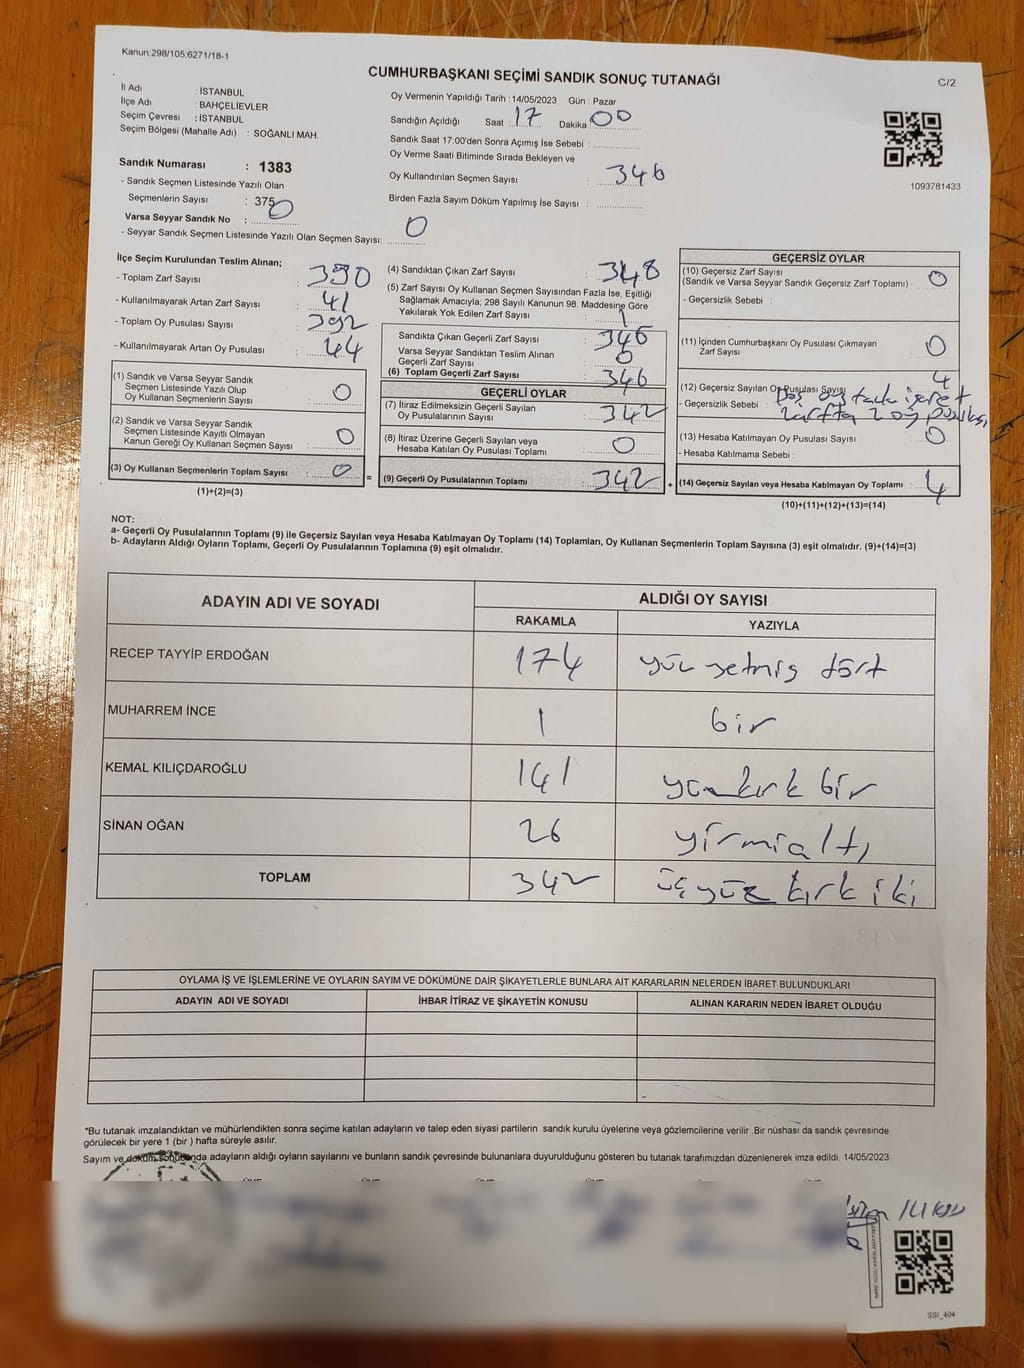 Kanun:298/105;6271/18-1
CUMHURBAŞKANI SEÇİMİ SANDIK SONUÇ TUTANAĞI
C/2
İl Adı : İSTANBUL
İlçe Adı : BAHÇELİEVLER
Seçim Çevresi : İSTANBUL
Seçim Bölgesi (Mahalle Adı) : SOĞANLI MAH.
Oy Vermenin Yapıldığı Tarih :14/05/2023 Gün : Pazar
Sandığın Açıldığı Saat : 17 Dakika : 00
Sandık Saat 17:00'den Sonra Açımış İse Sebebi :
Oy Verme Saati Bitiminde Sırada Bekleyen ve
Oy Kullandırılan Seçmen Sayısı : 346
Birden Fazla Sayım Döküm Yapılmış İse Sayısı :
1093781433
Sandık Numarası : 1383
- Sandık Seçmen Listesinde Yazılı Olan
Seçmenlerin Sayısı : 375
Varsa Seyyar Sandık No : 0
- Seyyar Sandık Seçmen Listesinde Yazılı Olan Seçmen Sayısı: 0
İlçe Seçim Kurulundan Teslim Alınan;
- Toplam Zarf Sayısı : 390
- Kullanılmayarak Artan Zarf Sayısı : 41
- Toplam Oy Pusulası Sayısı : 392
- Kullanılmayarak Artan Oy Pusulası : 44
(1) Sandık ve Varsa Seyyar Sandık
Seçmen Listesinde Yazılı Olup
Oy Kullanan Seçmenlerin Sayısı : 0
(2) Sandık ve Varsa Seyyar Sandık
Seçmen Listesinde Kayıtlı Olmayan
Kanun Gereği Oy Kullanan Seçmen Sayısı : 0
(3) Oy Kullanan Seçmenlerin Toplam Sayısı : 0
(1)+(2)=(3)
(4) Sandıktan Çıkan Zarf Sayısı : 348
(5) Zarf Sayısı Oy Kullanan Seçmen Sayısından Fazla İse, Eşitliği
Sağlamak Amacıyla; 298 Sayılı Kanunun 98. Maddesine Göre
Yakılarak Yok Edilen Zarf Sayısı : 1
Sandıkta Çıkan Geçerli Zarf Sayısı : 346
Varsa Seyyar Sandıktan Teslim Alınan
Geçerli Zarf Sayısı : 0
(6) Toplam Geçerli Zarf Sayısı : 346
GEÇERLİ OYLAR
(7) İtiraz Edilmeksizin Geçerli Sayılan
Oy Pusulalarının Sayısı : 342
(8) İtiraz Üzerine Geçerli Sayılan veya
Hesaba Katılan Oy Pusulası Toplamı : 0
(9) Geçerli Oy Pusulalarının Toplamı : 342
GEÇERSİZ OYLAR
(10) Geçersiz Zarf Sayısı : 0
(Sandık ve Varsa Seyyar Sandık Geçersiz Zarf Toplamı)
- Geçersizlik Sebebi :
(11) İçinden Cumhurbaşkanı Oy Pusulası Çıkmayan
Zarf Sayısı : 0
(12) Geçersiz Sayılan Oy Pusulası Sayısı : 4
- Geçersizlik Sebebi : işaret
zarfta 2 oy pusulası
(13) Hesaba Katılmayan Oy Pusulası Sayısı : 0
- Hesaba Katılmama Sebebi :
(14) Geçersiz Sayılan veya Hesaba Katılmayan Oy Toplamı : 4
(10)+(11)+(12)+(13)=(14)
NOT:
a- Geçerli Oy Pusulalarının Toplamı (9) ile Geçersiz Sayılan veya Hesaba Katılmayan Oy Toplamı (14) Toplamları, Oy Kullanan Seçmenlerin Toplam Sayısına (3) eşit olmalıdır. (9)+(14)=(3)
b- Adayların Aldığı Oyların Toplamı, Geçerli Oy Pusulalarının Toplamına (9) eşit olmalıdır.
ADAYIN ADI VE SOYADI ALDIĞI OY SAYISI
RAKAMLA YAZIYLA
RECEP TAYYİP ERDOĞAN 174 yüz yetmiş dört
MUHARREM İNCE 1 bir
KEMAL KILIÇDAROĞLU 141 yüz kırk bir
SİNAN OĞAN 26 yirmi altı
TOPLAM 342 üç yüz kırk iki
OYLAMA İŞ VE İŞLEMLERİNE VE OYLARIN SAYIM VE DÖKÜMÜNE DAİR ŞİKAYETLERLE BUNLARA AİT KARARLARIN NELERDEN İBARET BULUNDUKLARI
ADAYIN ADI VE SOYADI İHBAR İTİRAZ VE ŞİKAYETİN KONUSU ALINAN KARARIN NEDEN İBARET OLDUĞU
*Bu tutanak imzalandıktan ve mühürlendikten sonra seçime katılan adayların ve talep eden siyasi partilerin sandık kurulu üyelerine veya gözlemcilerine verilir .Bir nüshası da sandık çevresinde
görülecek bir yere 1 (bir ) hafta süreyle asılır.
Sayım ve döküm sonucunda adayların aldığı oyların sayılarını ve bunların sandık çevresinde bulunanlara duyurulduğunu gösteren bu tutanak tarafımızdan düzenlenerek imza edildi. 14/05/2023
SSI_404